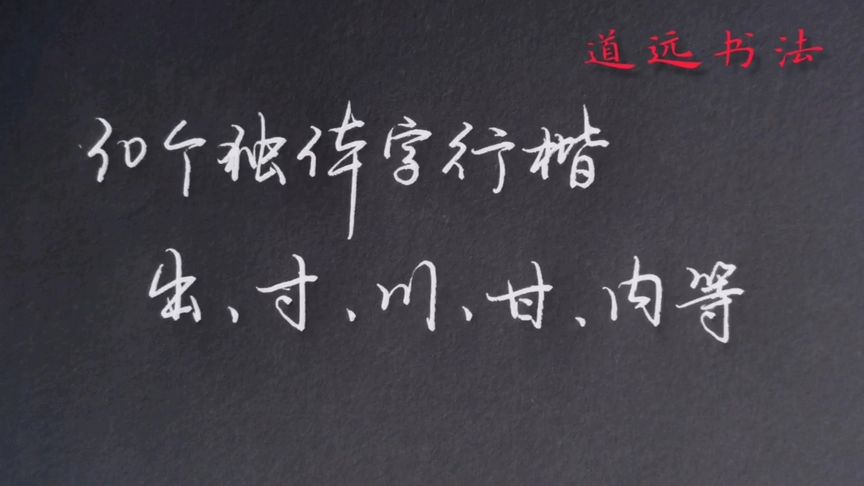 道远书法
10个独体字行楷
出、寸、川、甘、内等